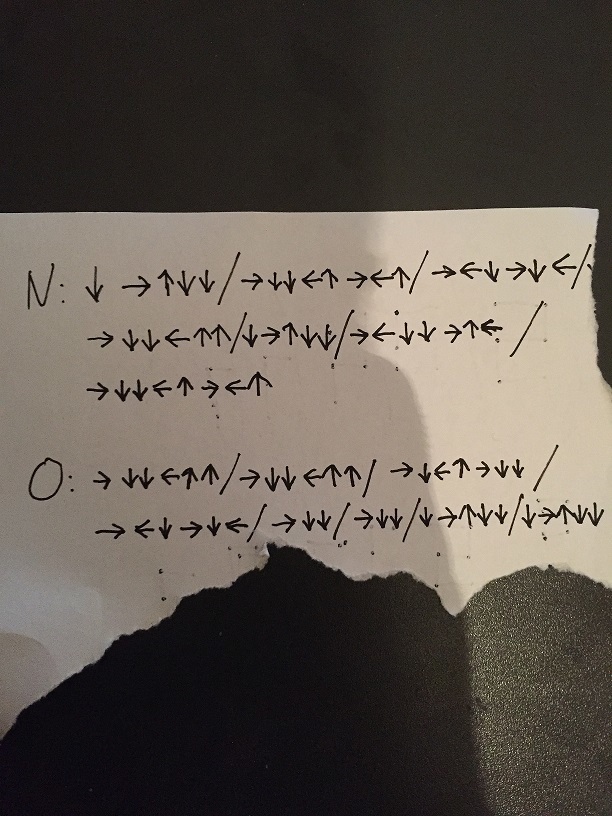 N: ↓ →↑↓↓/→↓↓←↑ →←↑/→←↓→↓←/
→↓↓←↑↑/↓→↑↓↓/→←↓↓→↑←/
→↓↓←↑→←↑
O: →↓↓←↑↑/→↓↓←↑↑/→↓←↑→↓↓/
→←↓→↓←/→↓↓/→↓↓/↓→↑↓↓/↓→↑↓↓